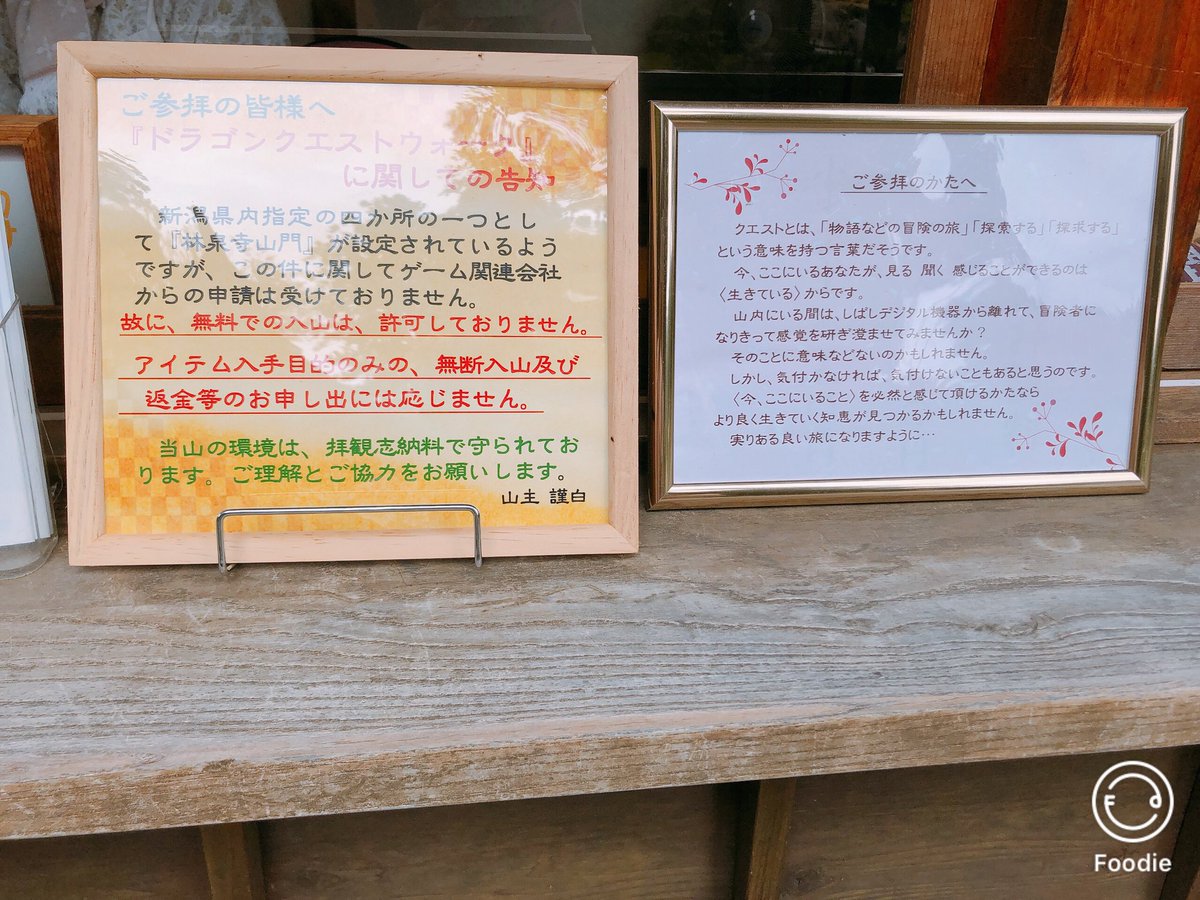 ご参拝の皆様へ
『ドラゴンクエストウォーク』
に関しての告知
新潟県内指定の四か所の一つとし
て『林泉寺山門』が設定されているよう
ですが、この件に関してゲーム関連会社
からの申請は受けておりません。
故に、無料での入山は、許可しておりません。
アイテム入手目的のみの、無断入山及び
返金等のお申し出には応じません。
当山の環境は、拝観志納料で守られてお
ります。ご理解とご協力をお願いします。
山主 謹白
ご参拝のかたへ
クエストとは、「物語などの冒険の旅」「探索する」「探求する」
という意味を持つ言葉だそうです。
今、ここにいるあなたが、見る 聞く 感じることができるのは
〈生きている〉からです。
山内にいる間は、しばしデジタル機器から離れて、冒険者に
なりきって感覚を研ぎ澄ませてみませんか？
そのことに意味などないのかもしれません。
しかし、気付かなければ、気付けないこともあると思うのです。
〈今、ここにいること〉を必然と感じて頂けるかたなら
より良く生きていく知恵が見つかるかもしれません。
実りある良い旅になりますように…
Foodie